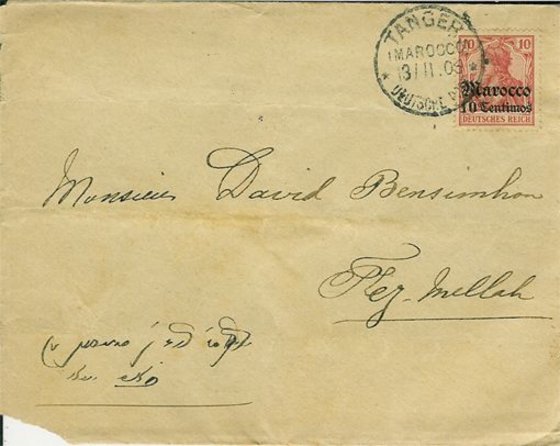 TANGER
(MAROCCO)
13/11.
DEUTSCHE
10 10
Marocco
10 Centimos
DEUTSCHES REICH
Monsieur David Bensimhon
Fez-Mellah